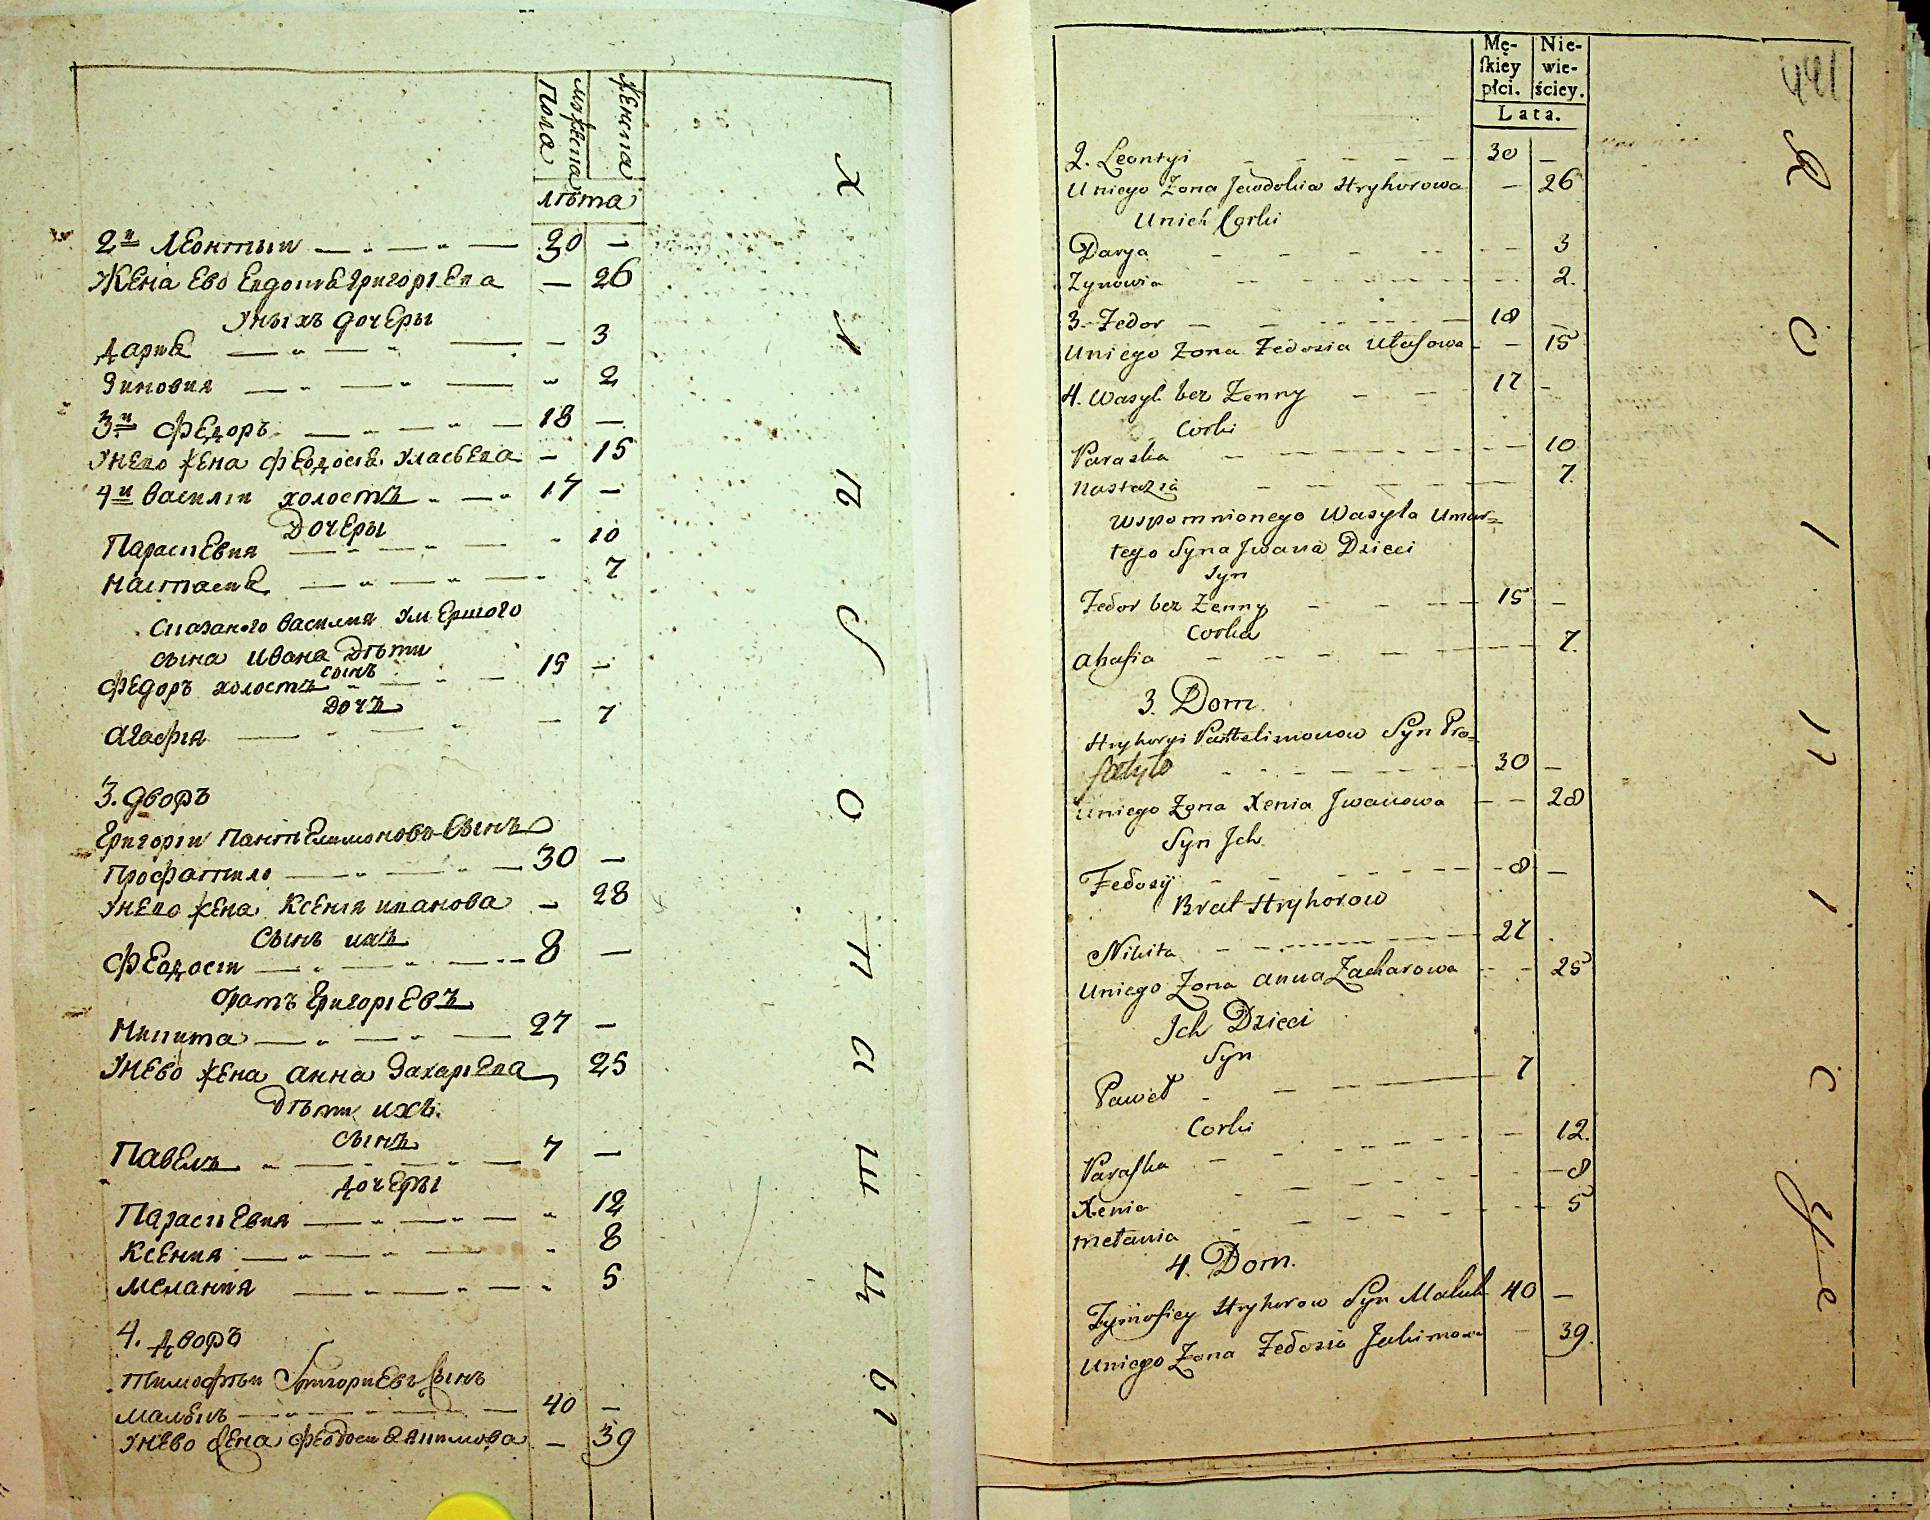 Пола
мужеска
Женска
лѣта
2й Леонтии 30 —
Жена ево Евдокия Григоріева — 26
У ныхъ дочеры
Дария — 3
Зиновия " 2
3й Федоръ 18 —
У нево жена Феодосия Уласьева — 15
4й Василии холостъ 17 —
Дочеры
Параскевия " 10
Настасия 7
Сказаного Василия умершого
сына Ивана Дѣти
сынъ
Федоръ холостъ 15 —
дочь
Агафия — 7
3. дворъ
Григории Пантелимоновъ Сынъ
Профатило 30 —
У нево жена Ксения иванова — 28
Сынъ ихъ
Феодосіи 8 —
братъ Григоріевъ
Никита 27 —
У нево жена анна Захаріева 25
Дѣти ихъ
сынъ
Павелъ 7 —
дочеры
Параскевия " 12
Ксения " 8
Мелания " 5
4. дворъ
Тимофѣи Григориевъ Сынъ
40 —
У нево жена Феодосия Якимова — 39
Х
л
о
п
ы
Mę-
ſkiey
płci.
Nie-
wie-
ściey.
Lata.
441
2. Leontyi 30 —
U niego Zona Jewdokia Hryhorowa — 26
U nich Corki
Darya 3
Zynowia 2.
3. Fedor 18 —
U niego Zona Fedosia Ułasowa — 15
4. Wasyl bez Zenny 17 —
Corki
Paraska 10
Nastazia 7.
Wspomnionego Wasyla Umar=
tego Syna Jwana Dzieci
Syn
Fedor bez Zenny 15 —
Corka
Ahafia 7.
3. Dom.
Hryhoryi Pantelimonow Syn Pro=
fatyło 30 —
U niego Zona Xenia Jwanowa — 28
Syn Jch
Fedosÿ 8 —
Brat Hryhorow
Nikita 27
U niego Zona Anna Zacharowa — 25
Jch Dzieci
Syn
Paweł 7
Corki
Paraſka 12.
Xenia 8
Metania 5
4. Dom.
Tymofiey Hryhorow Syn 40 —
U niego Zona Fedosia Jakimowa — 39.